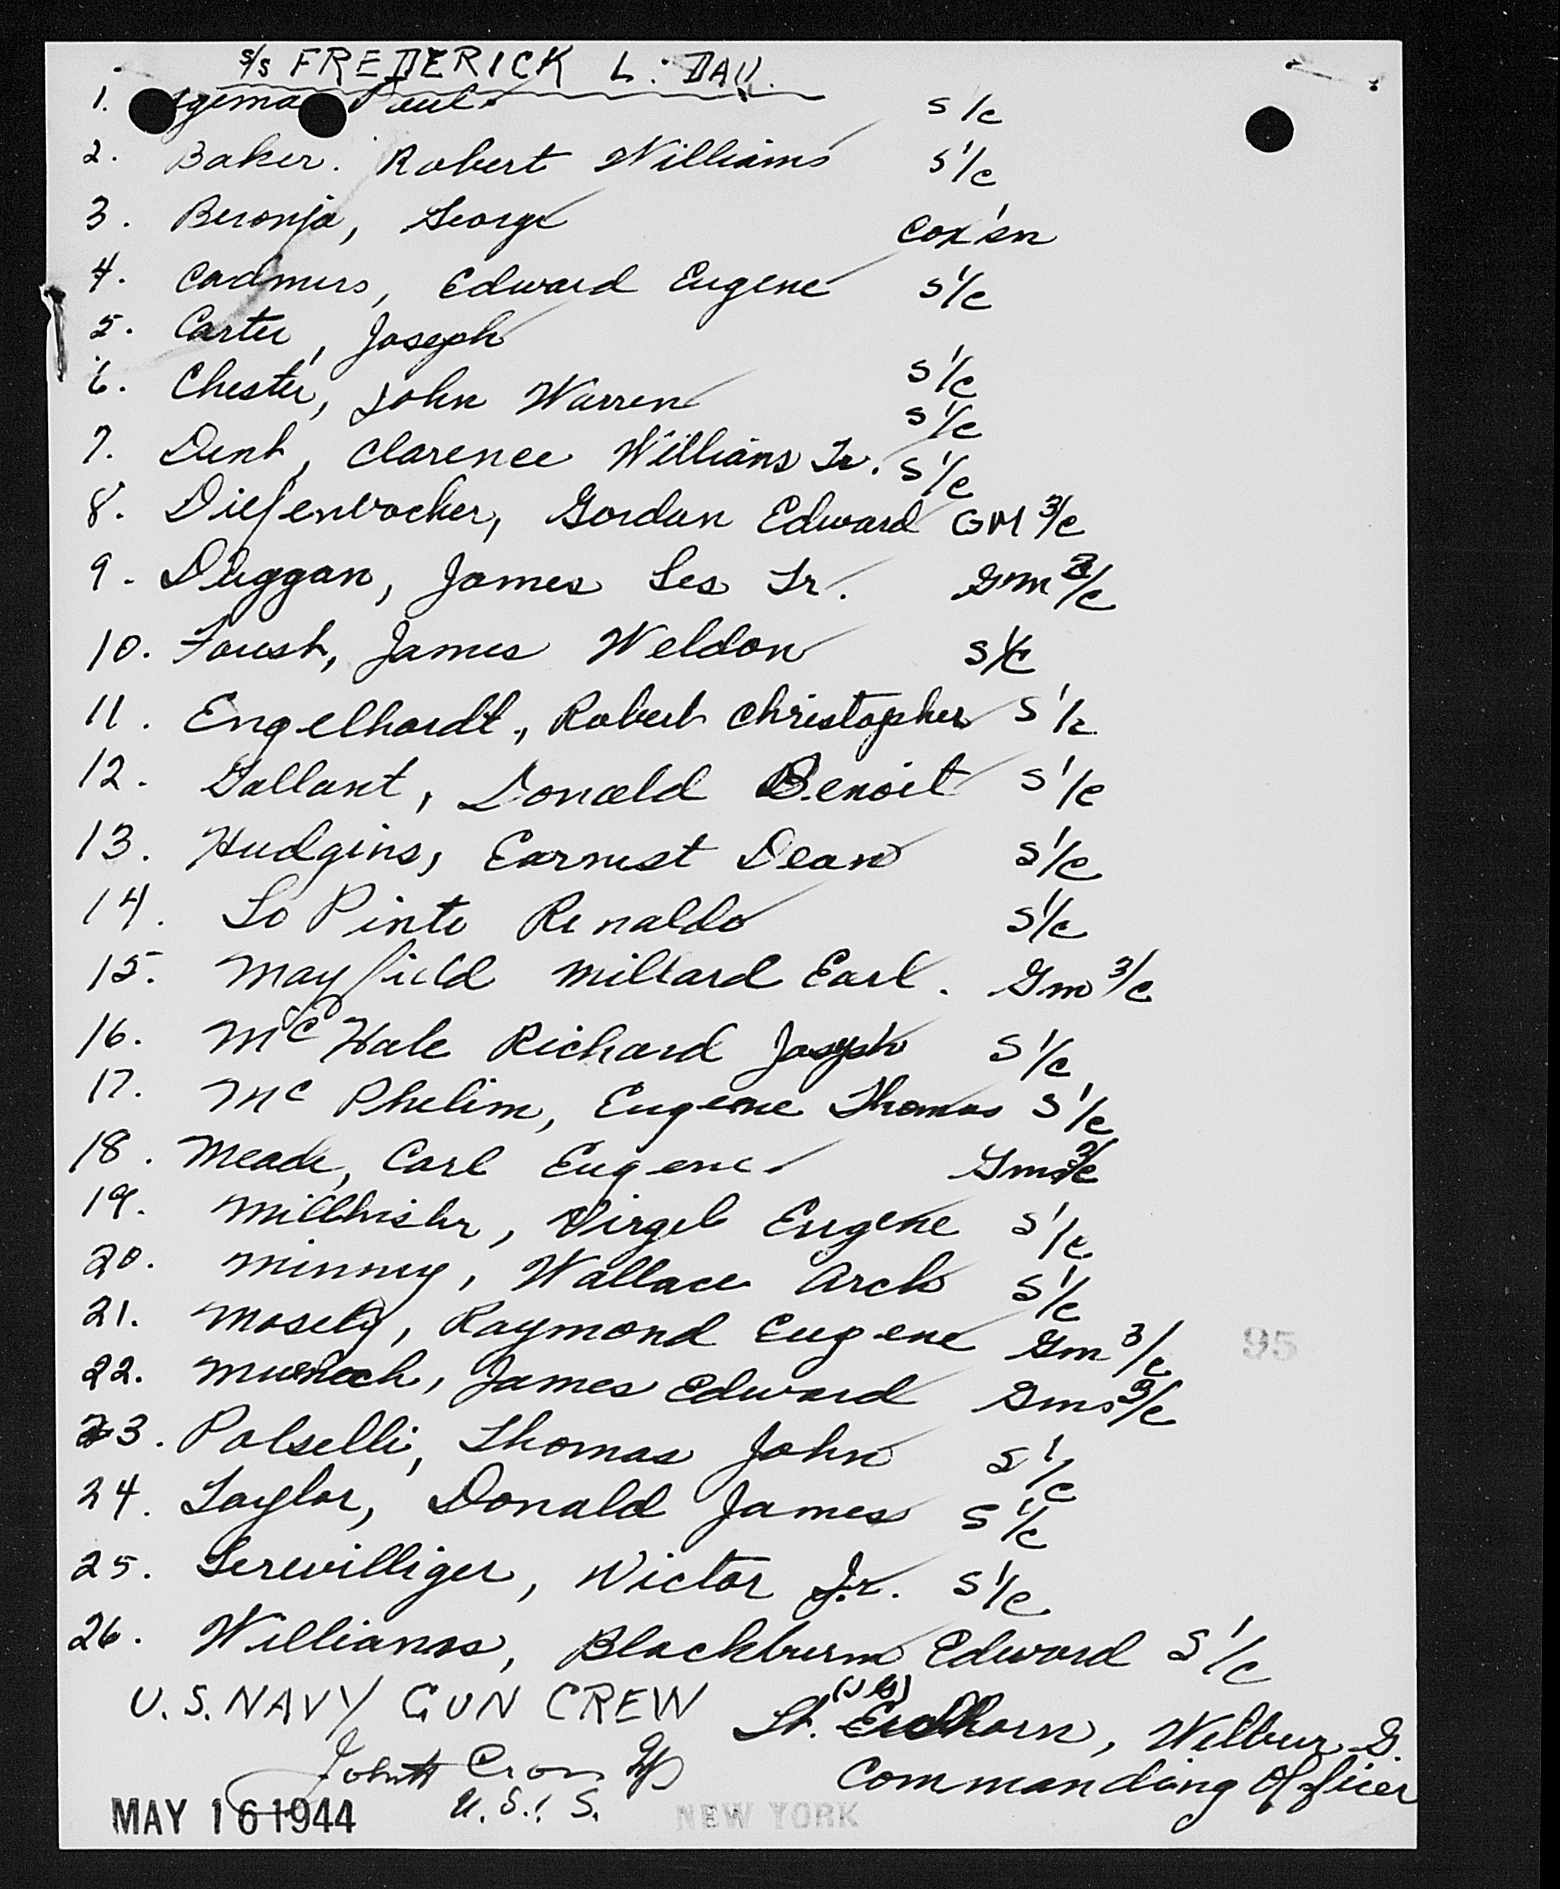 S/S FREDERICK L. DAU.
1. Paul S/c
2. Baker. Robert Williams S 1/c
3. Beronja, George Cox'sn
4. Cadmus, Edward Eugene S 1/c
5. Carter, Joseph S 1/c
6. Chester, John Warren S 1/c
7. Dent, Clarence Williams Jr. S 1/c
8. Diefenbocher, Gordon Edward GM 3/c
9. Duggan, James Les Jr. Gm 3/c
10. Foust, James Weldon S 1/c
11. Engelhardt, Robert Christopher S 1/c
12. Gallant, Donald Benoit S 1/c
13. Hudgins, Earnest Dean S 1/c
14. Lo Pinto Renaldo S 1/c
15. Mayfield Millard Earl. Gm 3/c
16. McHale Richard Joseph S 1/c
17. Mc Phelim, Eugene Thomas S 1/c
18. Meade, Carl Eugene Gm 3/c
19. Virgil Eugene S 1/c
20. Minney, Wallace Arch S 1/c
21. Mosely, Raymond Eugene Gm 3/c
22. James Edward Gm 3/c
23. Polselli, Thomas John S 1/c
24. Taylor, Donald James S 1/c
25. Terwilliger, Victor Jr. S 1/c
26. Williams, Blackburn Edward S 1/c
U.S. NAVY GUN CREW
(JG)
Lt. Wilbur G.
Commanding Officer
U.S.I.S.
MAY 16 1944
NEW YORK
95